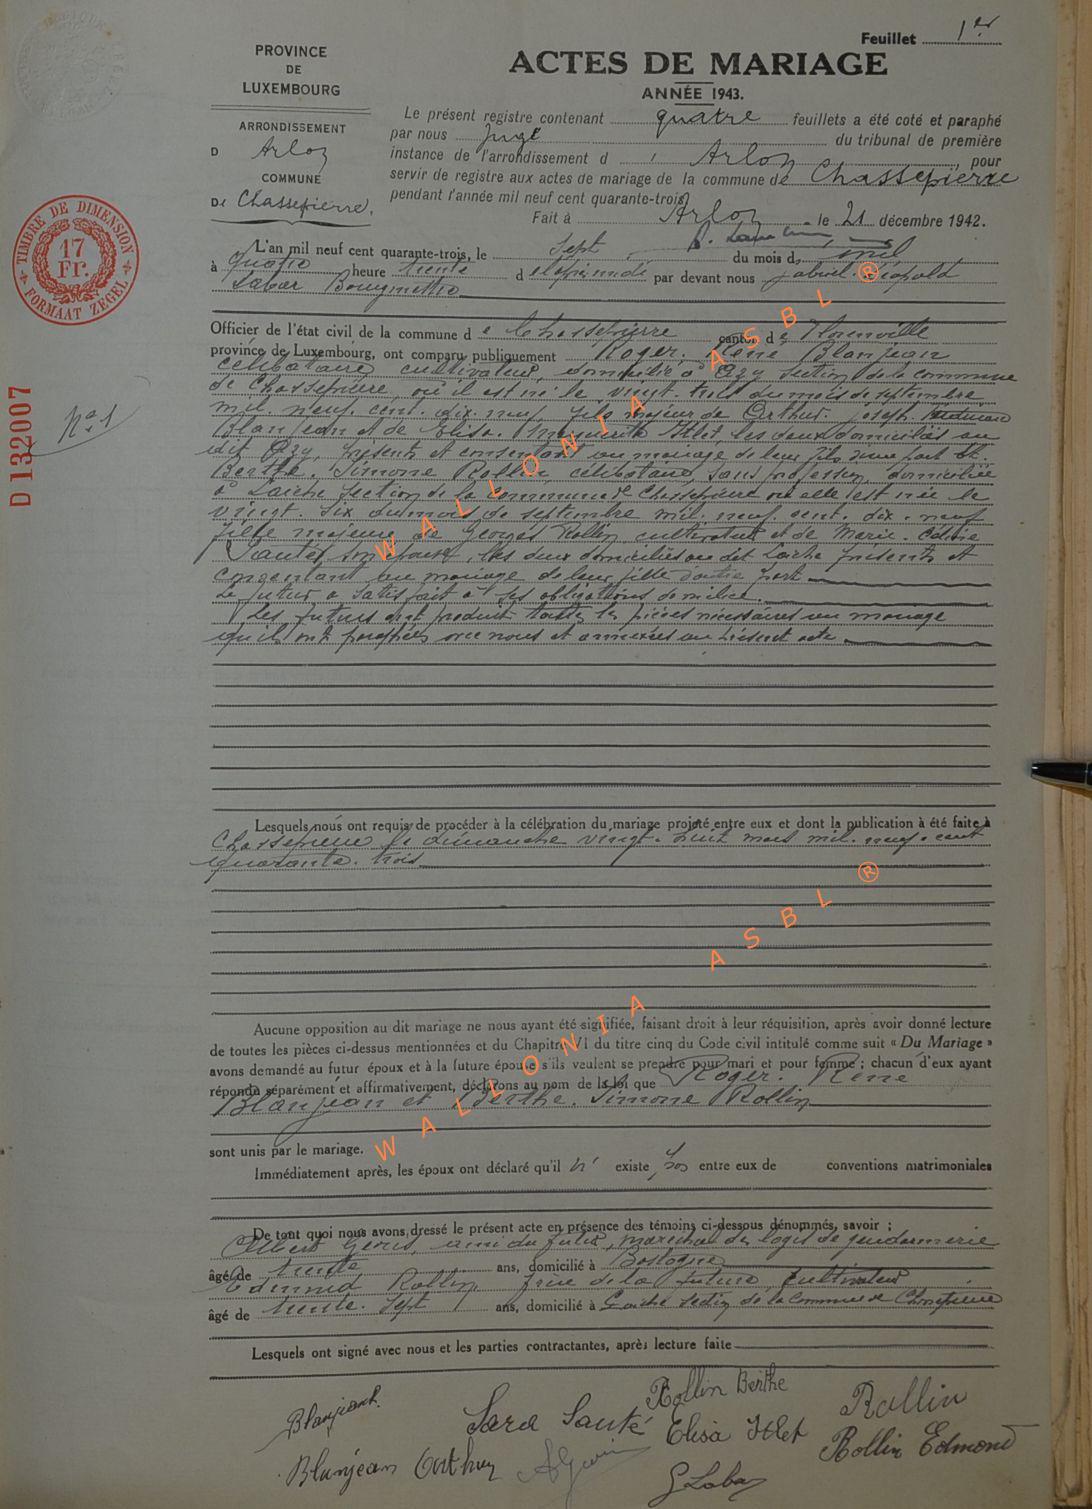 Feuillet 1er
PROVINCE
DE
LUXEMBOURG
ACTES DE MARIAGE
ANNÉE 1943.
ARRONDISSEMENT
D Arlon
COMMUNE
De Chassepierre.
Le présent registre contenant quatre feuillets a été coté et paraphé
par nous Juge du tribunal de première
instance de l'arrondissement d' Arlon, pour
servir de registre aux actes de mariage de la commune de Chassepierre
pendant l'année mil neuf cent quarante-trois.
Fait à Arlon le 21 décembre 1942.
TIMBRE DE DIMENSION
17
Fr.
FORMAAT ZEGEL
D 132007
No 1
L'an mil neuf cent quarante-trois, le sept du mois d'avril
à quatre heure trente de l'après-midi par devant nous Gabriel Léopold
Labar Bourgmestre
Officier de l'état civil de la commune de Chassepierre canton de Florenville
province de Luxembourg, ont comparu publiquement Roger. René Blanjean
célibataire, cultivateur, domicilié à Azy section de la commune
de Chassepierre, où il est né le vingt-trois du mois de septembre
mil. neuf. cent. dix. neuf fils majeur de Arthur. Joseph.
Blanjean et de Elisa. Marguerite Itlet les deux domiciliés au
dit Azy, présents et consentant au mariage de leur fils d'une part et
Berthe. Simone Rollin célibataire, sans profession, domiciliée
à Laiche section de la commune de Chassepierre où elle est née le
vingt. six du mois de septembre mil. neuf. cent. dix. neuf
fille majeure de Georges Rollin cultivateur et de Marie.
Santé, son épouse, les deux domiciliés au dit Laiche présents et
consentant au mariage de leur fille d'autre part
Le futur a satisfait à ses obligations de milice.
Les futurs ont produit toutes les pièces nécessaires au mariage
qu'ils ont paraphées avec nous et annexées au présent acte.
Lesquels nous ont requis de procéder à la célébration du mariage projeté entre eux et dont la publication a été faite à
Chassepierre le dimanche vingt. huit mars mil. neuf. cent
quarante. trois.
Aucune opposition au dit mariage ne nous ayant été signifiée, faisant droit à leur réquisition, après avoir donné lecture
de toutes les pièces ci-dessus mentionnées et du Chapitre VI du titre cinq du Code civil intitulé comme suit « Du Mariage »
avons demandé au futur époux et à la future épouse s'ils veulent se prendre pour mari et pour femme ; chacun d'eux ayant
répondu séparément et affirmativement, déclarons au nom de la loi que Roger. René
Blanjean et Berthe. Simone Rollin
sont unis par le mariage.
Immédiatement après, les époux ont déclaré qu'il n' existe pas entre eux de conventions matrimoniales
De tout quoi nous avons dressé le présent acte en présence des témoins ci-dessous dénommés, savoir :
Albert ami du futur, maréchal des logis de gendarmerie
âgé de trente ans, domicilié à Bastogne
Edmond Rollin frère de la future, cultivateur
âgé de trente. sept ans, domicilié à Laiche section de la commune de Chassepierre
Lesquels ont signé avec nous et les parties contractantes, après lecture faite
Blanjean R. Sara Santé Rollin Berthe Rollin
Blanjean Arthur Elisa Itlet Rollin Edmond
G Labar
WALLONIA ASBL ®
WALLONIA ASBL ®